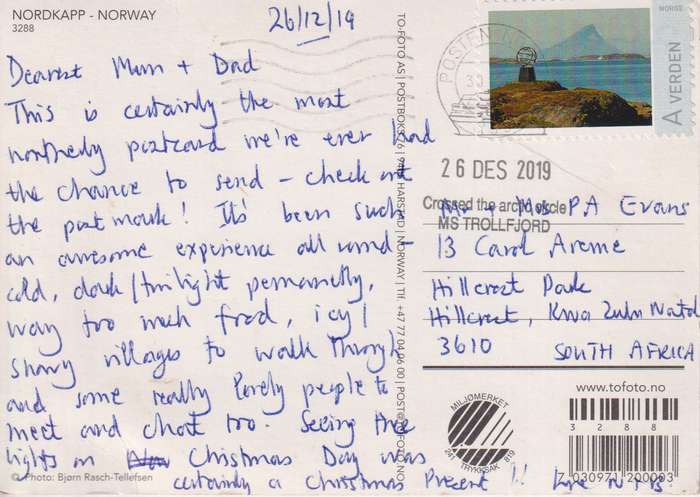 NORDKAPP - NORWAY
3288
26/12/19
Dearest Mum + Dad
This is certainly the most
northerly postcard we're ever had
the chance to send - check out
the postmark! It's been such
an awesome experience all round -
cold, dark/twilight permanently,
way too much food, icy/
snowy villages to walk through
and some really lovely people to
meet and chat too. Seeing the
lights on Christmas Day was
certainly a Christmas Present!!
© Photo: Bjørn Rasch-Tellefsen
TO-FOTO AS | POSTBOKS
HARSTAD | NORWAY | Tlf. +47 77 04 06 00 | POST@TOFOTO.NO
POSTEN
NORGE
A VERDEN
26 DES 2019
Crossed the arctic circle
MS TROLLFJORD
Mr + Mrs PA Evans
13 Carol Avenue
Hillcrest Park
Hillcrest, Kwa Zulu Natal
3610 SOUTH AFRICA
MILJØMERKET
241 TRYKKSAK 819
www.tofoto.no
3 2 8 8
030971 200003